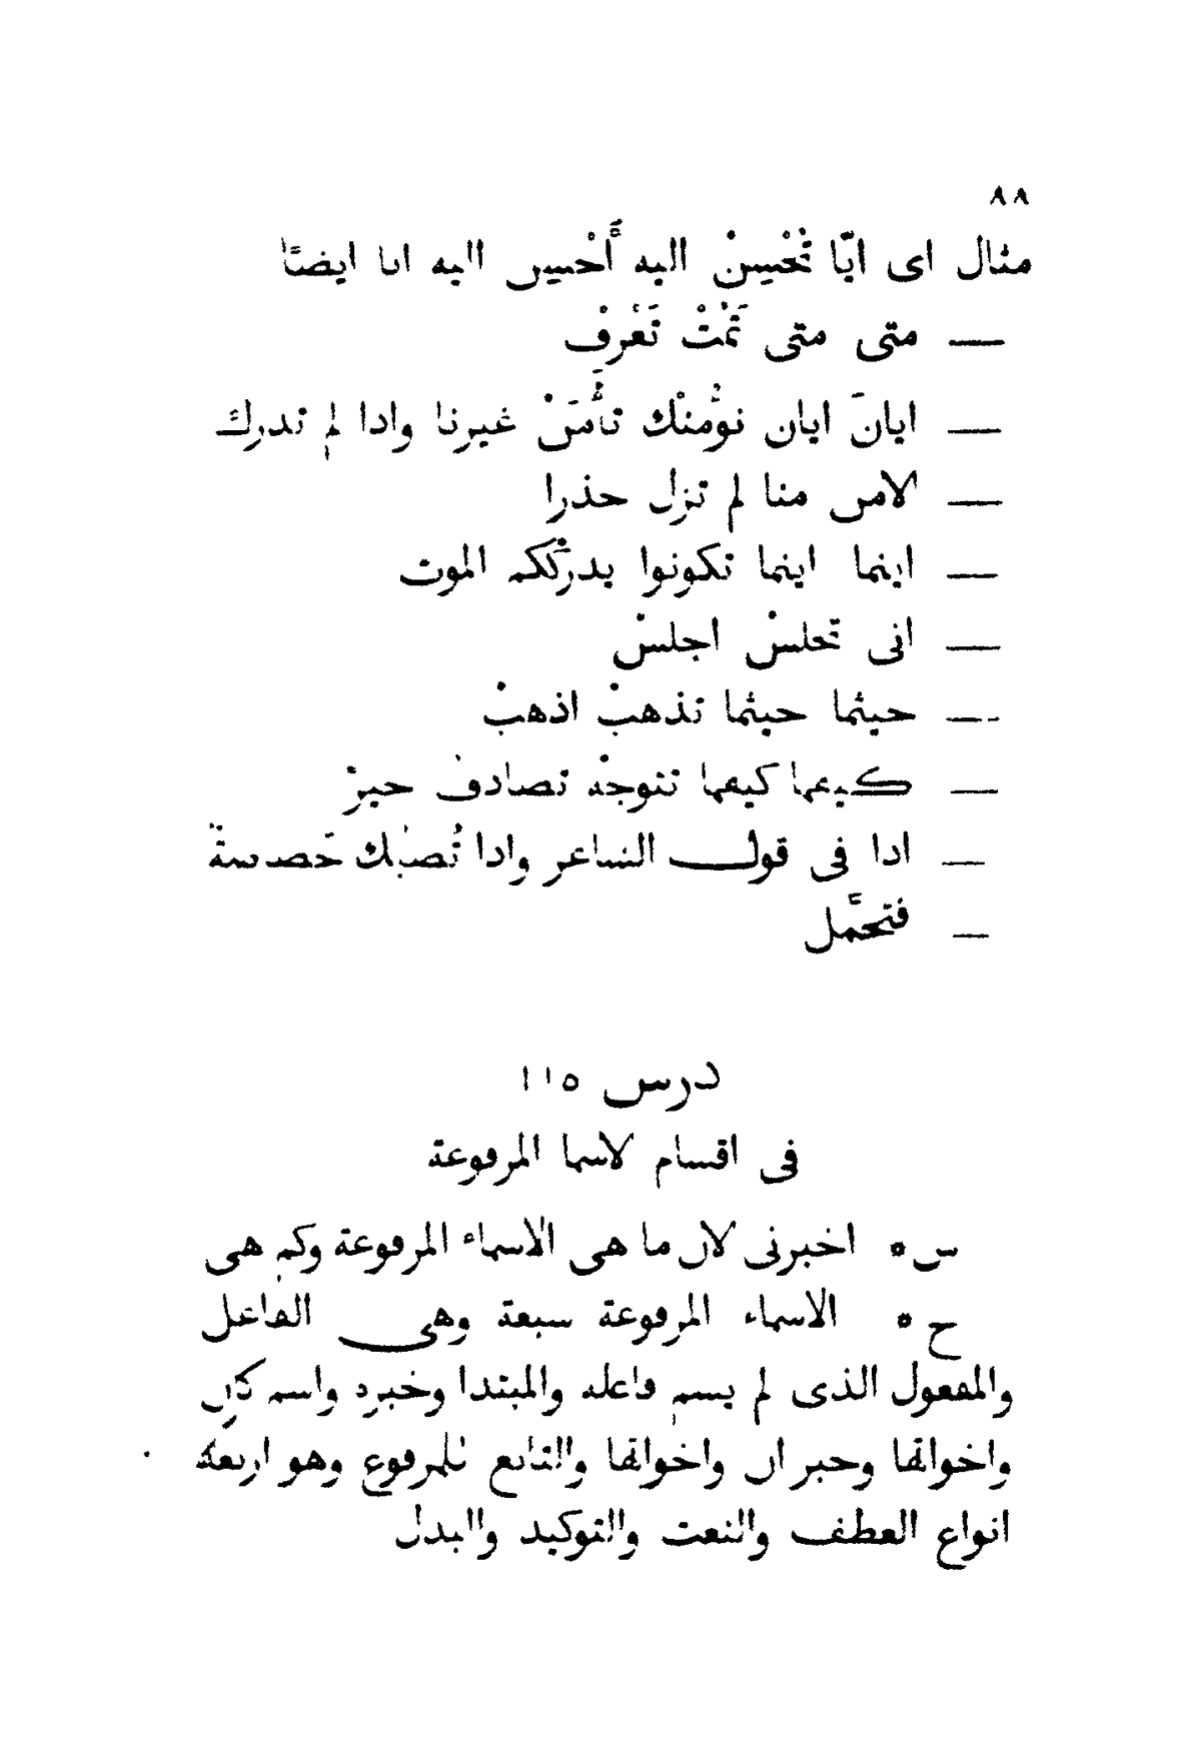 ٨٨
مثال اى ايّا تُحْسِنْ اليه أُحْسِن اليه انا ايضًا
— متى متى تَمُتْ تَعْرِفْ
— ايانَ ايان نؤْمنْك تأْمَنْ غيرنا واذا لم تدرك
— لامن منا لم تزل حذرا
— اينما اينما تكونوا يدرِكْكم الموت
— انى تجلسْ اجلسْ
— حيثما حيثما تذهبْ اذهبْ
— كيفما كيفما تتوجهْ تصادفْ خيرْ
— اذا فى قول الشاعر واذا تُصبْك خَصاصةٌ
— فتحمَّل
درس ١١٥
فى اقسام لاسما المرفوعة
س ٥ اخبرنى لان ما هى الاسماء المرفوعة وكم هى
ج ٥ الاسماء المرفوعة سبعة وهى الفاعل
والمفعول الذى لم يسم فاعله والمبتدا وخبره واسم كان
واخواتها وخبر ان واخواتها والتابع للمرفوع وهو اربعة
انواع العطف والنعت والتوكيد والبدل